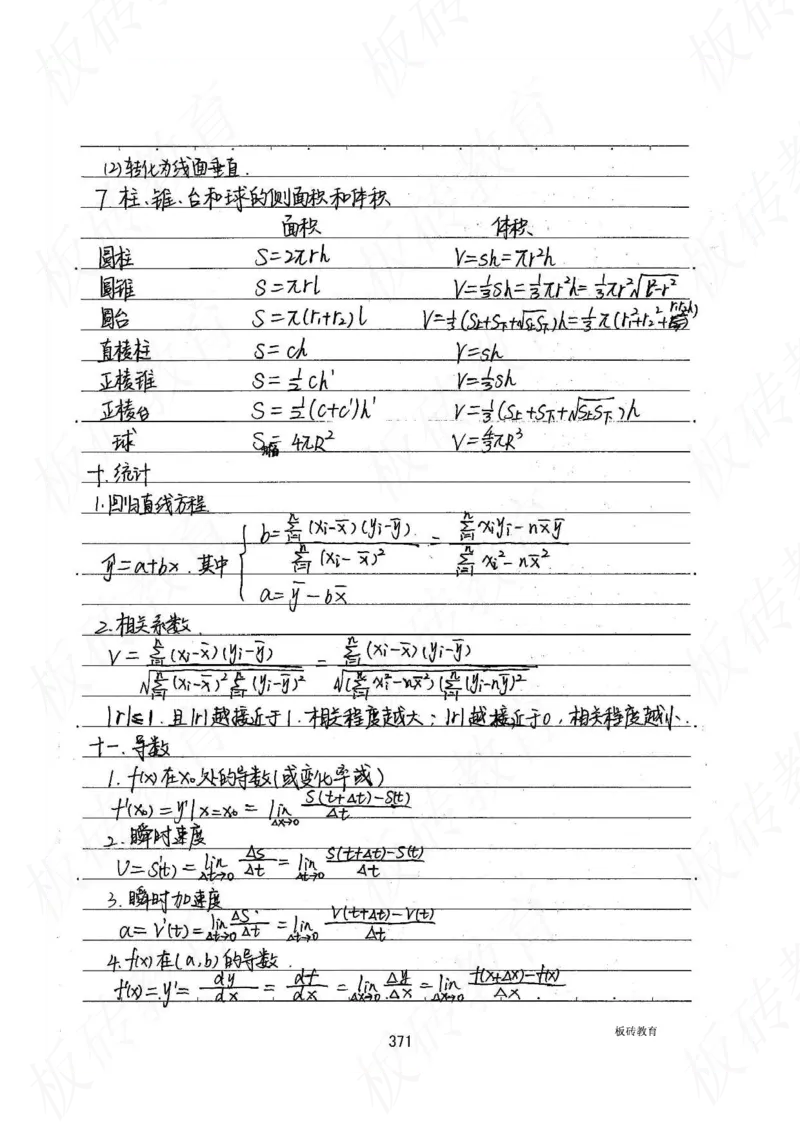 (2)转化为线面垂直.
7 柱、锥、台和球的侧面积和体积
面积 体积
圆柱 S=2πrh V=sh=πr²h
圆锥 S=πrl V=⅓Sh=⅓πr²h=⅓πr²√(l²-r²)
圆台 S=π(r₁+r₂)l V=⅓(S上+S下+√(S上S下))h=⅓π(r₁²+r₂²+r₁r₂)h
直棱柱 S=ch V=sh
正棱锥 S=½ch' V=⅓sh
正棱台 S=½(c+c')h' V=⅓(S上+S下+√(S上S下))h
球 S球面=4πR² V=4/3πR³
十.统计
1.回归直线方程
ŷ=a+bx.其中 { b=∑(i=1→n)(xi-x̄)(yi-ȳ)/∑(i=1→n)(xi-x̄)² = (∑(i=1→n)xiyi-nx̄ȳ)/(∑(i=1→n)xi²-nx̄²)
a=ȳ-bx̄
2.相关系数.
r=∑(i=1→n)(xi-x̄)(yi-ȳ)/√(∑(i=1→n)(xi-x̄)²∑(i=1→n)(yi-ȳ)²) = ∑(i=1→n)(xi-x̄)(yi-ȳ)/√((∑(i=1→n)xi²-nx̄²)(∑(i=1→n)(yi-nȳ)²
|r|≤1.且|r|越接近于1.相关程度越大;|r|越接近于0,相关程度越小.
十一.导数
1.f(x)在x₀处的导数(或变化率或)
f'(x₀)=y'|x=x₀=lim(Δx→0) (S(t+Δt)-S(t))/Δt
2.瞬时速度
V=S'(t)=lim(Δt→0) ΔS/Δt=lim(Δt→0) (S(t+Δt)-S(t))/Δt
3.瞬时加速度
a=V'(t)=lim(Δt→0) ΔS/Δt=lim(Δt→0) (V(t+Δt)-V(t))/Δt
4.f(x)在(a,b)的导数.
f'(x)=y'=dy/dx=df/dx=lim(Δx→0) Δy/Δx=lim(Δx→0) (f(x+Δx)-f(x))/Δx
板砖教育
371